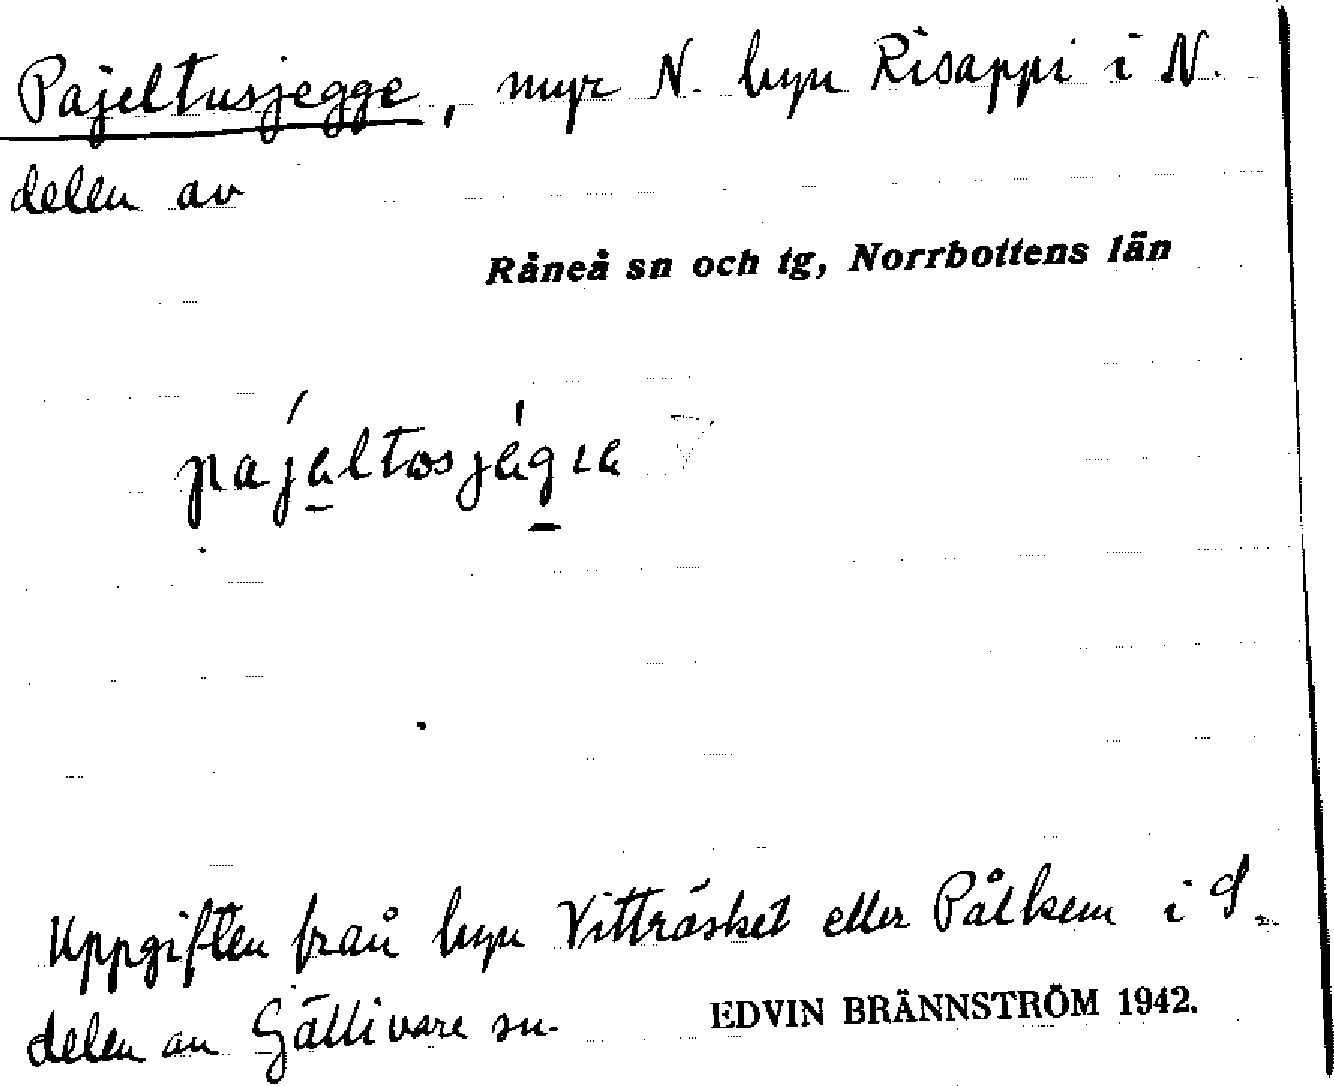 Pajeltusjegge, myr N. byn Risappi i N.
delen av
Råneå sn och tg, Norrbottens län
pája̱ltosjág̱ıe
Uppgiften från byn Vitträsket eller Pålkem i S.
delen av Gällivare sn.
EDVIN BRÄNNSTRÖM 1942.